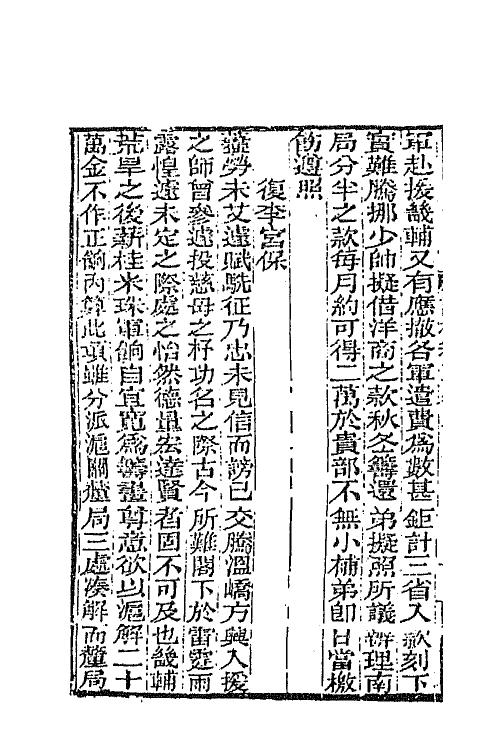 軍赴援畿輔又有應撤各軍遣費為數甚鉅計三省入款刻下
實難騰挪少帥擬借洋商之款秋冬籌還弟擬照所議辦理南
局分半之款每月約可得二萬於貴部不無小補弟即日當檄
飭遵照
復李宮保
薤勞未艾遠賦駪征乃忠未見信而謗已交騰溫嶠方興入援
之師曾參遽投慈母之杼功名之際古今所難閣下於雷霆雨
露惶遽未定之際處之怡然德量宏遠賢者固不可及也畿輔
荒旱之後薪桂米珠軍餉自宜寬為籌畫前意欲以滬解二十
萬金不作正餉內算此項雖分派滬關釐局三處湊解而釐局